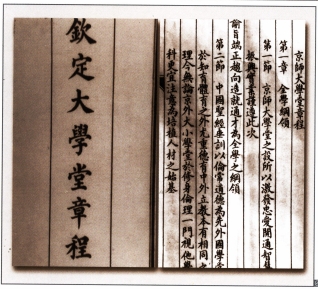 京師大學堂章程
第一章　全學綱領
第一節　京師大學堂之設所以激發忠愛開通智慧
振興實業謹遵此次
諭旨端正趨向造就通才為全學之綱領
第二節　中國聖經垂訓以倫常道德為先外國學堂
於知育體育之外尤重德育中外立教本有相同之
理今無論京外大小學堂於修身倫理一門視他學
科更宜注意為培植人材之始基
欽定大學堂章程